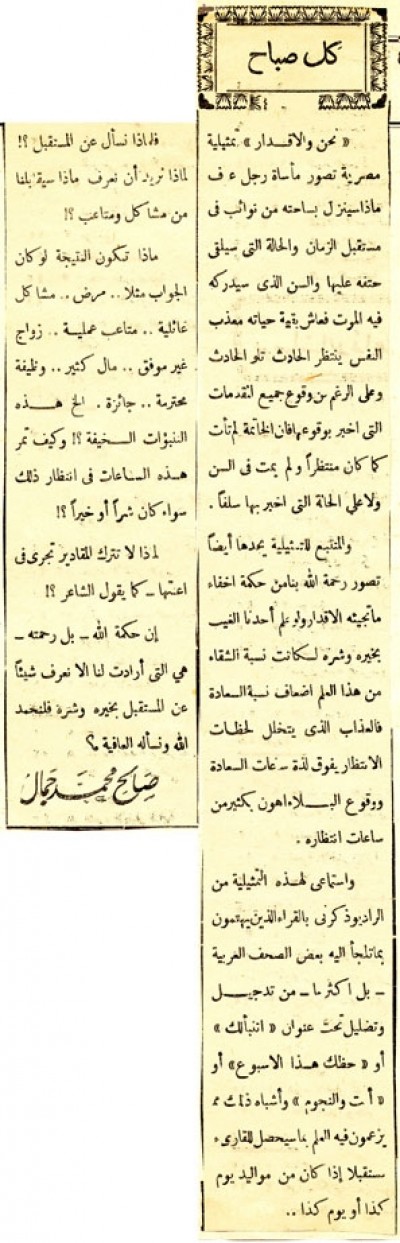 كل صباح
« نحن والاقدار » تمثيلية
مصرية تصور مأساة رجل عرف
ماذا سينزل بساحته من نوائب فى
مستقبل الزمان والحالة التى سيلقى
حتفه عليها والسن الذى سيدركه
فيه الموت فعاش بقية حياته معذب
النفس ينتظر الحادث تلو الحادث
وعلى الرغم من وقوع جميع المقدمات
التى اخبر بوقوعها فان الخاتمة لم تأت
كما كان منتظراً ولم يمت فى السن
ولا على الحالة التى اخبر بها سلفاً .
والمتتبع للتمثيلية يجدها أيضاً
تصور رحمة الله بنا من حكمة اخفاء
ما تجيئه الاقدار ولو علم أحدنا الغيب
بخيره وشره لكانت نسبة الشقاء
من هذا العلم اضعاف نسبة السعادة
فالعذاب الذى يتخلل لحظات
الانتظار يفوق لذة ساعات السعادة
ووقوع البلاء اهون بكثير من
ساعات انتظاره .
واستماعى لهذه التمثيلية من
الراديو ذكرنى بالقراء الذين يهتمون
بما تلجأ اليه بعض الصحف العربية
ـ بل اكثرها ـ من تدجيل
وتضليل تحت عنوان « انتبألك »
أو « حظك هذا الاسبوع » أو
« أنت والنجوم » وأشباه ذلك مما
يزعمون فيه العلم بما سيحصل للقارىء
مستقبلا إذا كان من مواليد يوم
كذا أو يوم كذا ..
فلماذا نسأل عن المستقبل ؟!
لماذا نريد أن نعرف ماذا سيقابلنا
من مشاكل ومتاعب ؟!
ماذا تكون النتيجة لو كان
الجواب مثلا .. مرض .. مشاكل
عائلية .. متاعب عملية .. زواج
غير موفق .. مال كثير .. وظيفة
محترمة .. جائزة . الخ هذه
التنبؤات السخيفة ؟! وكيف تمر
هذه الساعات فى انتظار ذلك
سواء كان شراً أو خيراً ؟!
لماذا لا نترك المقادير تجرى فى
اعنتها ـ كما يقول الشاعر ؟!
إن حكمة الله ـ بل رحمته ـ
هى التى أرادت لنا الا نعرف شيئاً
عن المستقبل بخيره وشره فلنحمد
الله ونسأله العافية م؟
صالح محمد جمال